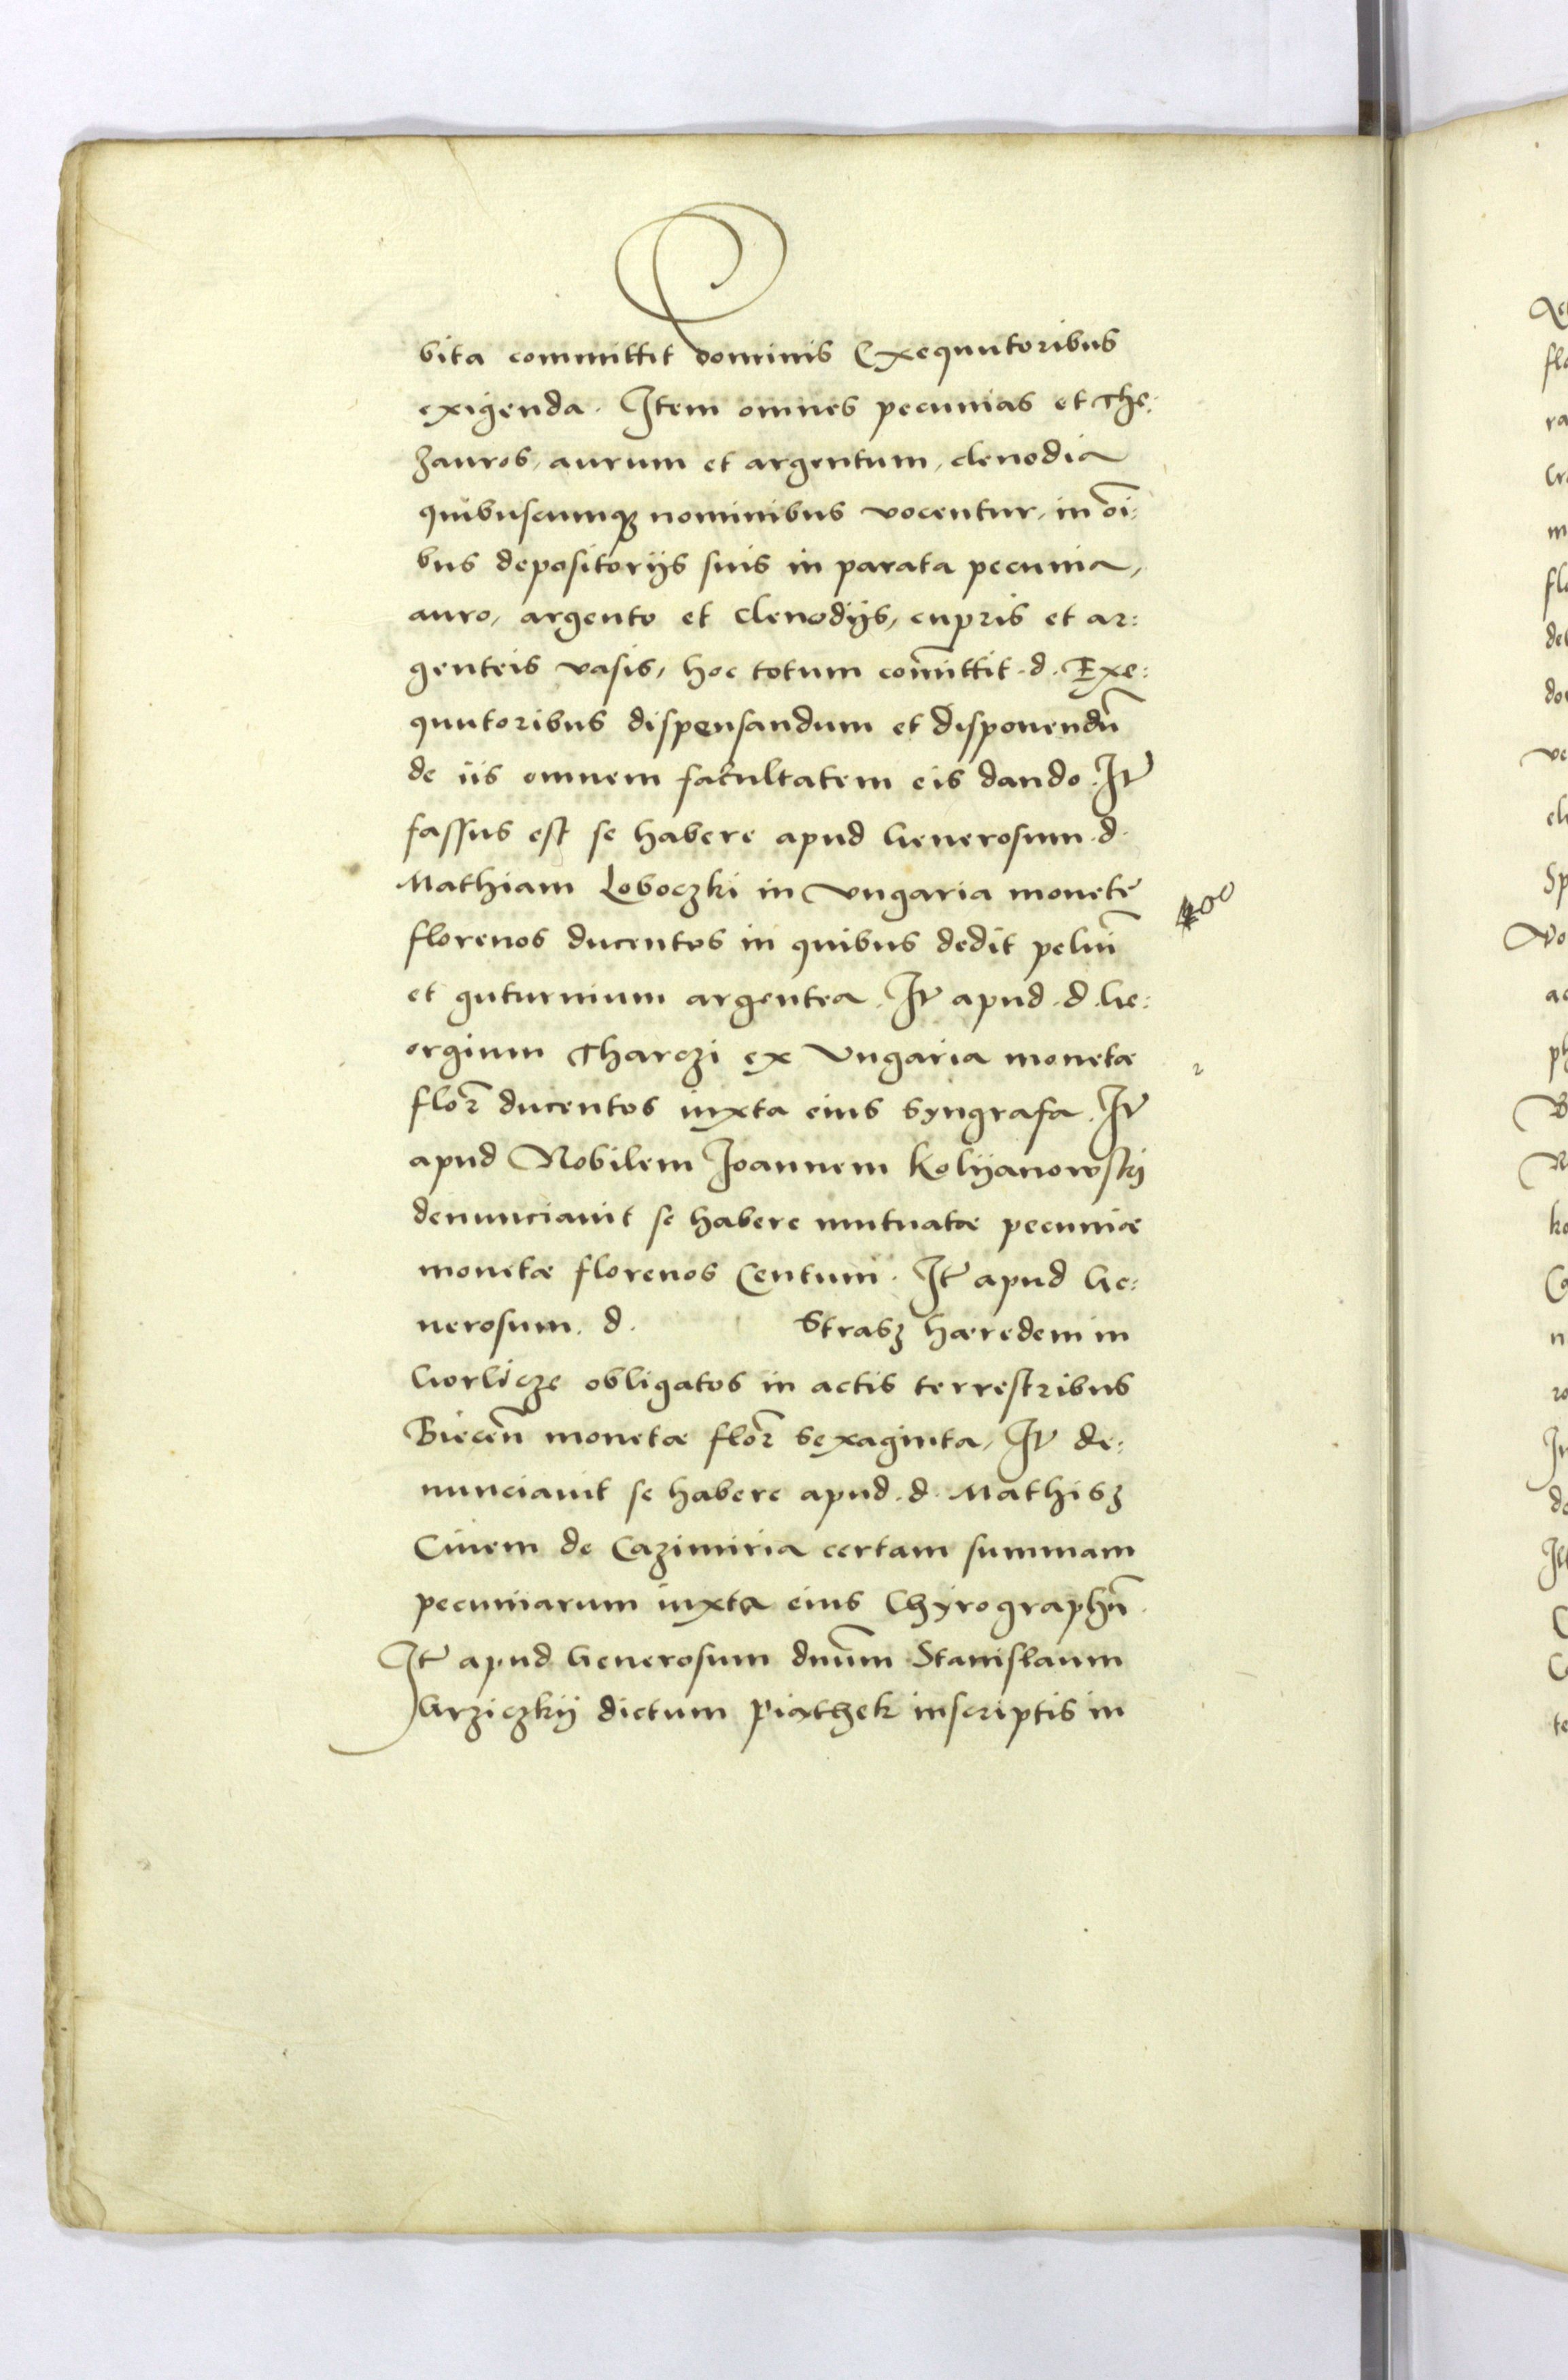 bita committit dominis Exequutoribus
exigenda. Item omnes pecunias et The:
zauros, aurum et argentum, clenodia
quibuscumqꝫ nominibus vocentur, in oi͂:
bus depositorijs suis in parata pecunia,
auro, argento et clenodijs, cupris et ar:
genteis vasis, hoc totum com̄ittit .d. Exe:
quutoribus dispensandum et disponendū
de iis omnem facultatem eis dando. It͂
fassus est se habere apud Generosum .d.
Mathiam Loboczki in Vngaria monetę
400
florenos ducentos in quibus dedit peluī
et guturnium argentea. It͂ apud .d. Ge:
orgium Tharczi ex Vngaria monetæ
flor͂ ducentos iuxta eius Syngrafa. It͂
apud Nobilem Joannem Kolijanowskij
denunciauit se habere mutuatæ pecuniæ
monetæ florenos Centum. It͂ apud Ge:
nerosum. d. Strasz hæredem in
Gorlicze obligatos in actis terrestribus
Biecen͂ monetæ flor͂ Sexaginta, It͂ de:
nunciauit se habere apud .d. Mathisz
Ciuem de Cazimiria certam summam
pecuniarum iuxta eius Chyrographū.
It͂ apud Generosum dnūm Stanislaum
Grziczkij dictum Piathek inscriptis in